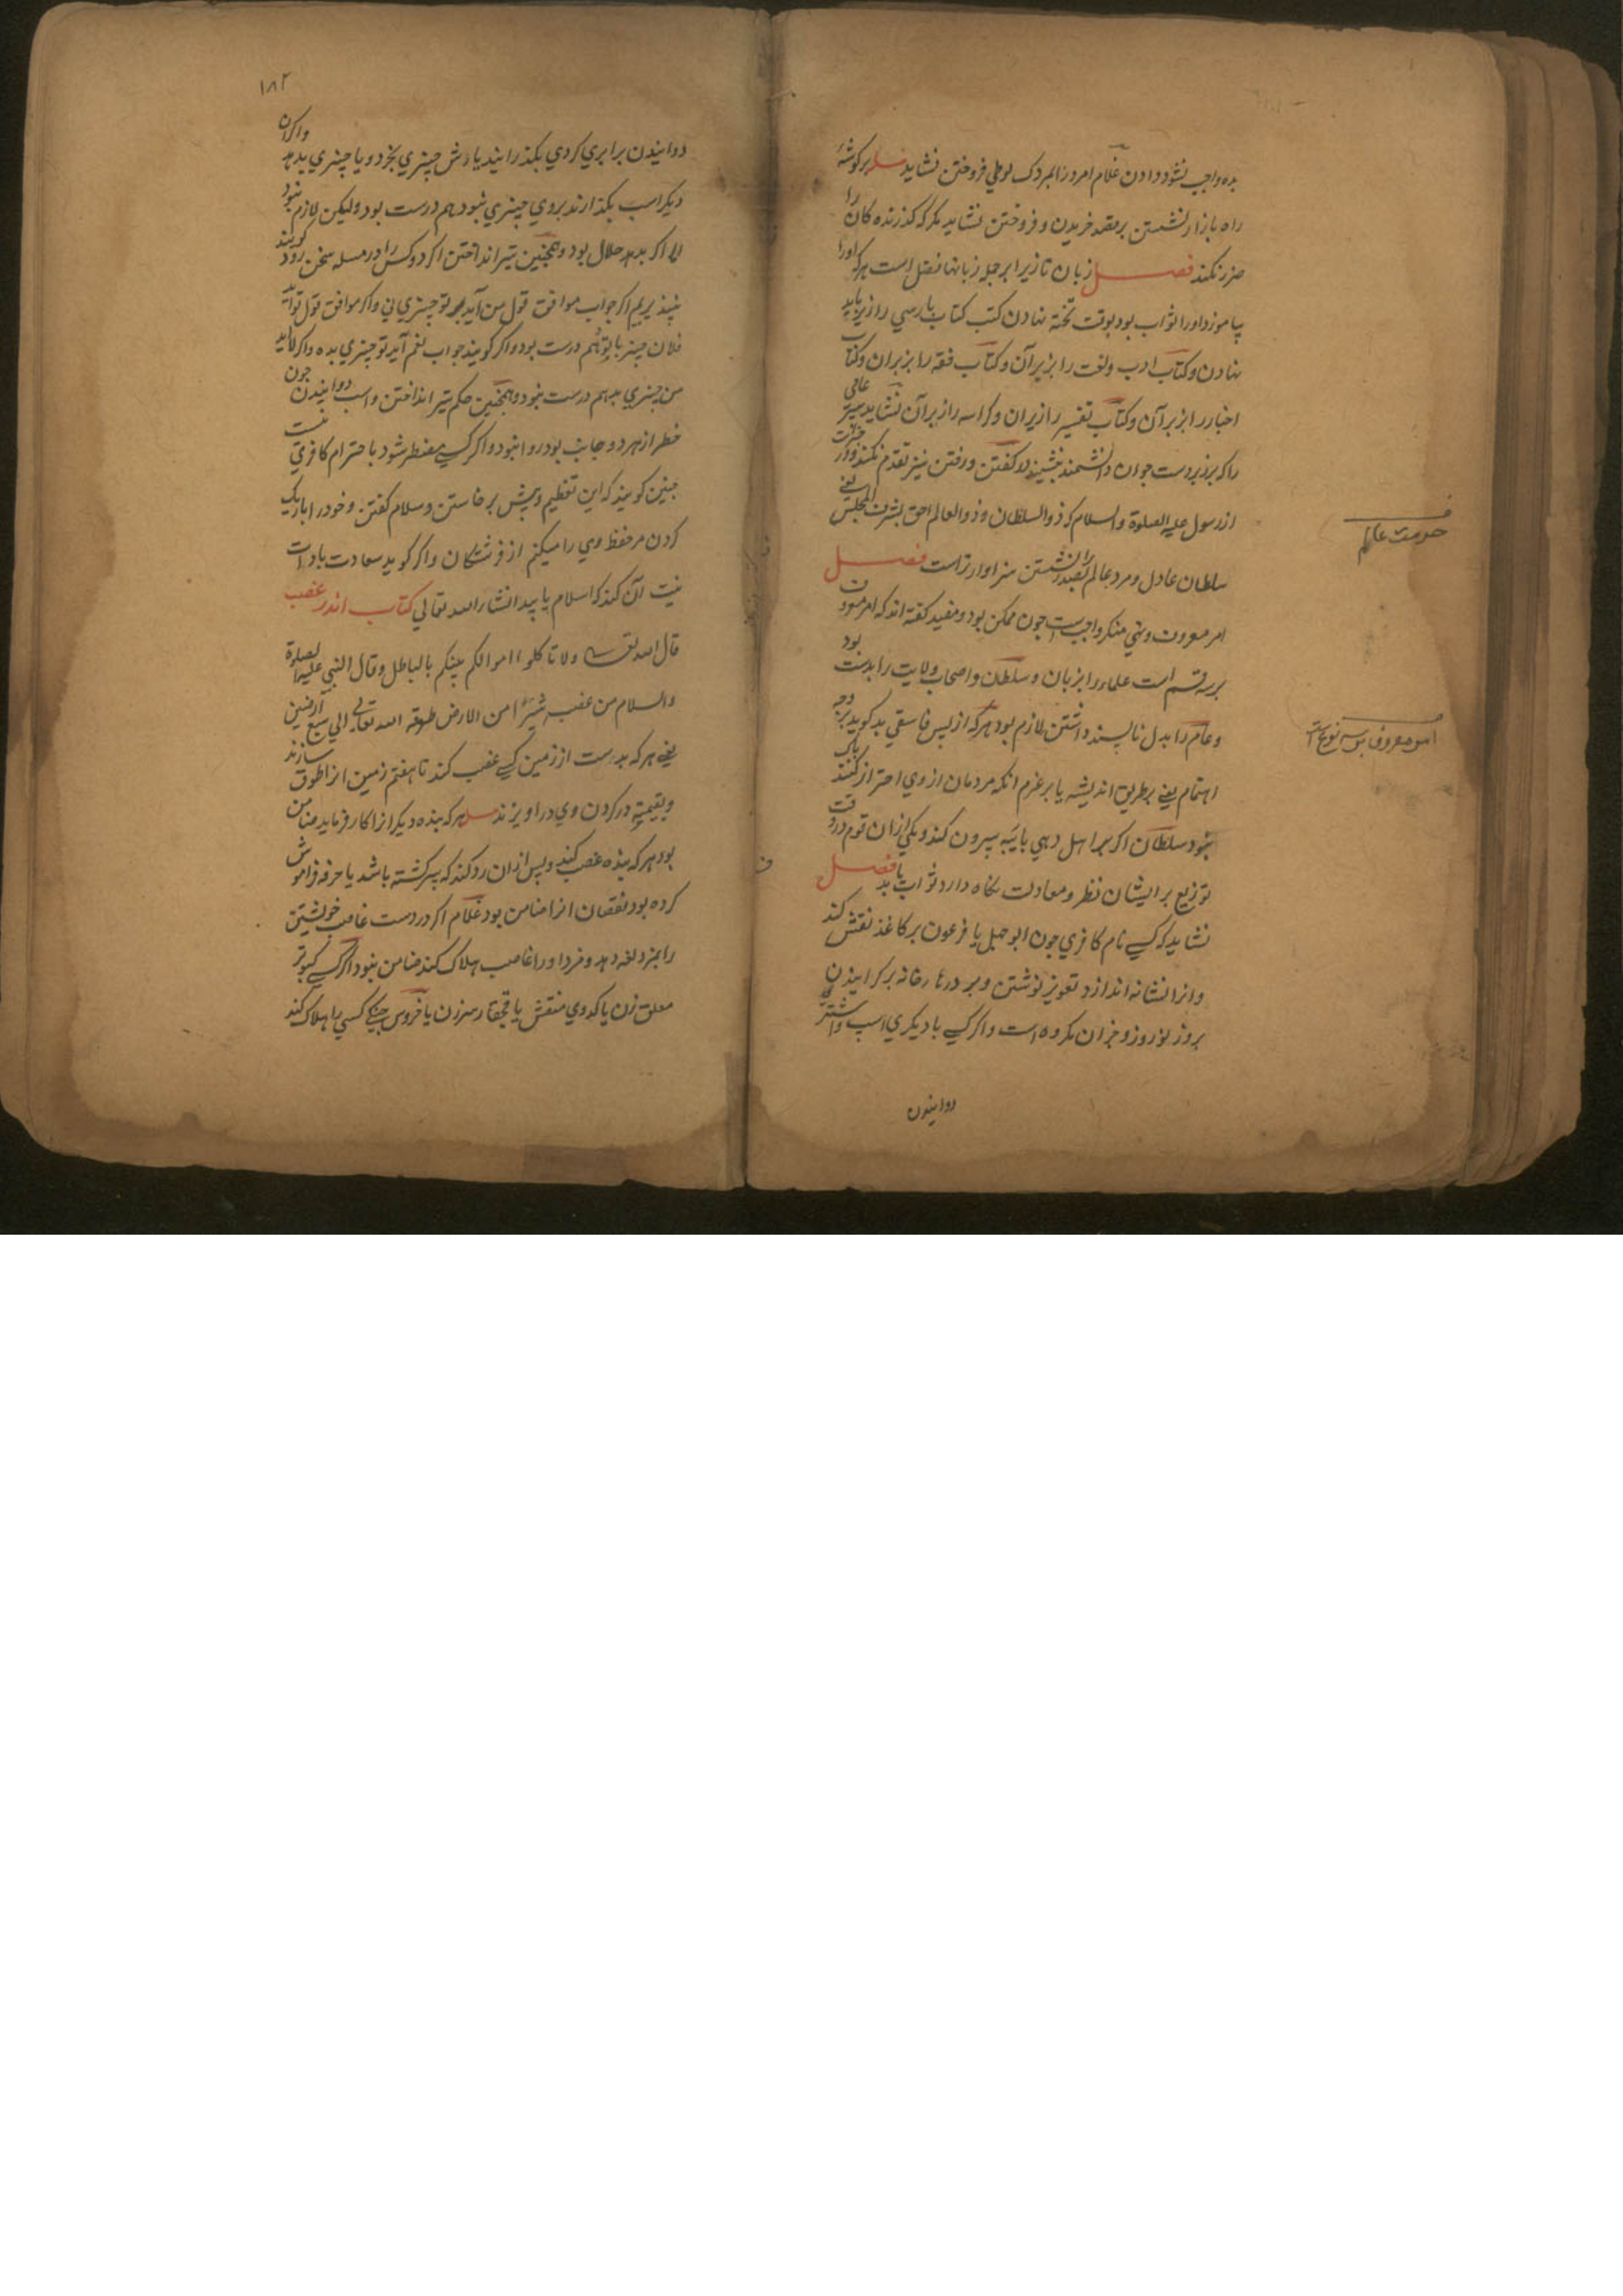 بده واجب نشود دادن غلام امرد را بمردک لوطي فروختن نشايد مسله بر گوشهٔ
راه بازار نشستن بر مقصد خريدن و فروختن نشايد مگر که گذرنده کان را
ضرر نکند فصل زبان تازيرا بر جمله زبانها فضل است هر که اورا
بياموزد اورا ثواب بود بوقت تخته نهادن کتب کتاب پارسي را زير بايد
نهادن و کتاب ادب و لغت را بزير آن و کتاب فقه را بزبران و کتاب
اخبار را بزبر آن و کتاب تفسير را زبران و کراسه را زبر آن نشايد پير عامي
را که بر زبردست جوان دانشمند بنشيند و در گفتن و رفتن نيز تقدم نکند
از رسول عليه الصلوة والسلام که ذو السلطان و ذو العالم احق بشرف المجلس يعني
سلطان عادل و مرد عالم بصدر نشستن سزاوارتر است فصل
امر معروف و نهي منکر واجب است چون ممکن بود و مفيد گفته اند که امر معروف
بر سه قسم است علماء را بزبان و سلطان و اصحاب ولايت را بدست بود
و عام را بدل ناپسند داشتن لازم بود هر که از پس فاسقي بد گويد بر وجه
اهتمام يعني بطريق انديشه يا بر عزم آنکه مردمان از وي احتراز کنند باک
نبود سلطان اگر بر اهل دهي بايبه بيرون کند و يکي ازان قوم در وقت
توزيع بر ايشان نظر و معادلت نگاه دارد ثواب يابد فصل
نشايد که کسے نام کافري چون ابو جهل يا فرعون بر کاغذ نقش کند
و انرا نشانه اندازد تعويذ نوشتن و بر درها رخانه بر کرانيدن
بروز نوروز و خزان مکروه است و اگر کسے با ديگري اسپ و اشتر
دوانيدن
حرمت عالم
امر معروف بر سه نوع است
۱۸۲
دوانيدن برابري کردي بگذرانيد يا دش چيزي بخرد و يا چيزي بدهد و اگر ان
ديگر اسب بگذارند بروي چيزي نبود هم درست بود وليکن لازم نبود
اما اگر بدهد حلال بود و همچنين تير انداختن اگر دو کس را در مسله سخن رود گويند
بپذيريم اگر جواب موافق قول من آيد مر تو چيزي ني و اگر موافق قول تو آيد
فلان چيز با تو دهم درست بود و اگر گويند جواب نعم آيد تو چيزي بده و اگر لا آيد
من چيزي بدهم درست نبود و همچنين حکم تير انداختن و اسب دوانيدن چون
خطر از هر دو جانب بود روا نبود و اگر کسے مضطر شود باحترام کافري نيت
چنين گويند که اين تعظيم و پيش برخاستن و سلام گفتن و خود را باريک
کردن مر حفظ وي را ميکنم از فرشتگان و اگر گويد سعادت بادات
نيت آن کند که اسلام يابد انشاء الله تعالي کتاب اندر غصب
قال الله تعالى ولا تاکلوا اموالکم بينکم بالباطل و قال النبي عليه الصلوة
والسلام من غصب شبرًا من الارض طوقه الله تعالى الى سبع ارضين
يعني هر که بدست از زمين کسے غصب کند تا هفتم زمين انرا طوق سازند
و بقيمته در گردن وي در اويزند مسله هر که بنده ديگر انرا کار فرمايد ضامن
بود هر که بنده غصب کند و پس ازان رد کند که پير گشته باشد يا حرفه فراموش
کرده بود نقصان انرا ضامن بود غلام اگر در دست غاصب خويشتن
را بزند و فردا اورا غاصب هلاک کند ضامن نبود اگر کسے کبوتر
معلق زن يا کدوي منقش يا قجقار سرزن يا خروس جنگے کسي را هلاک کند